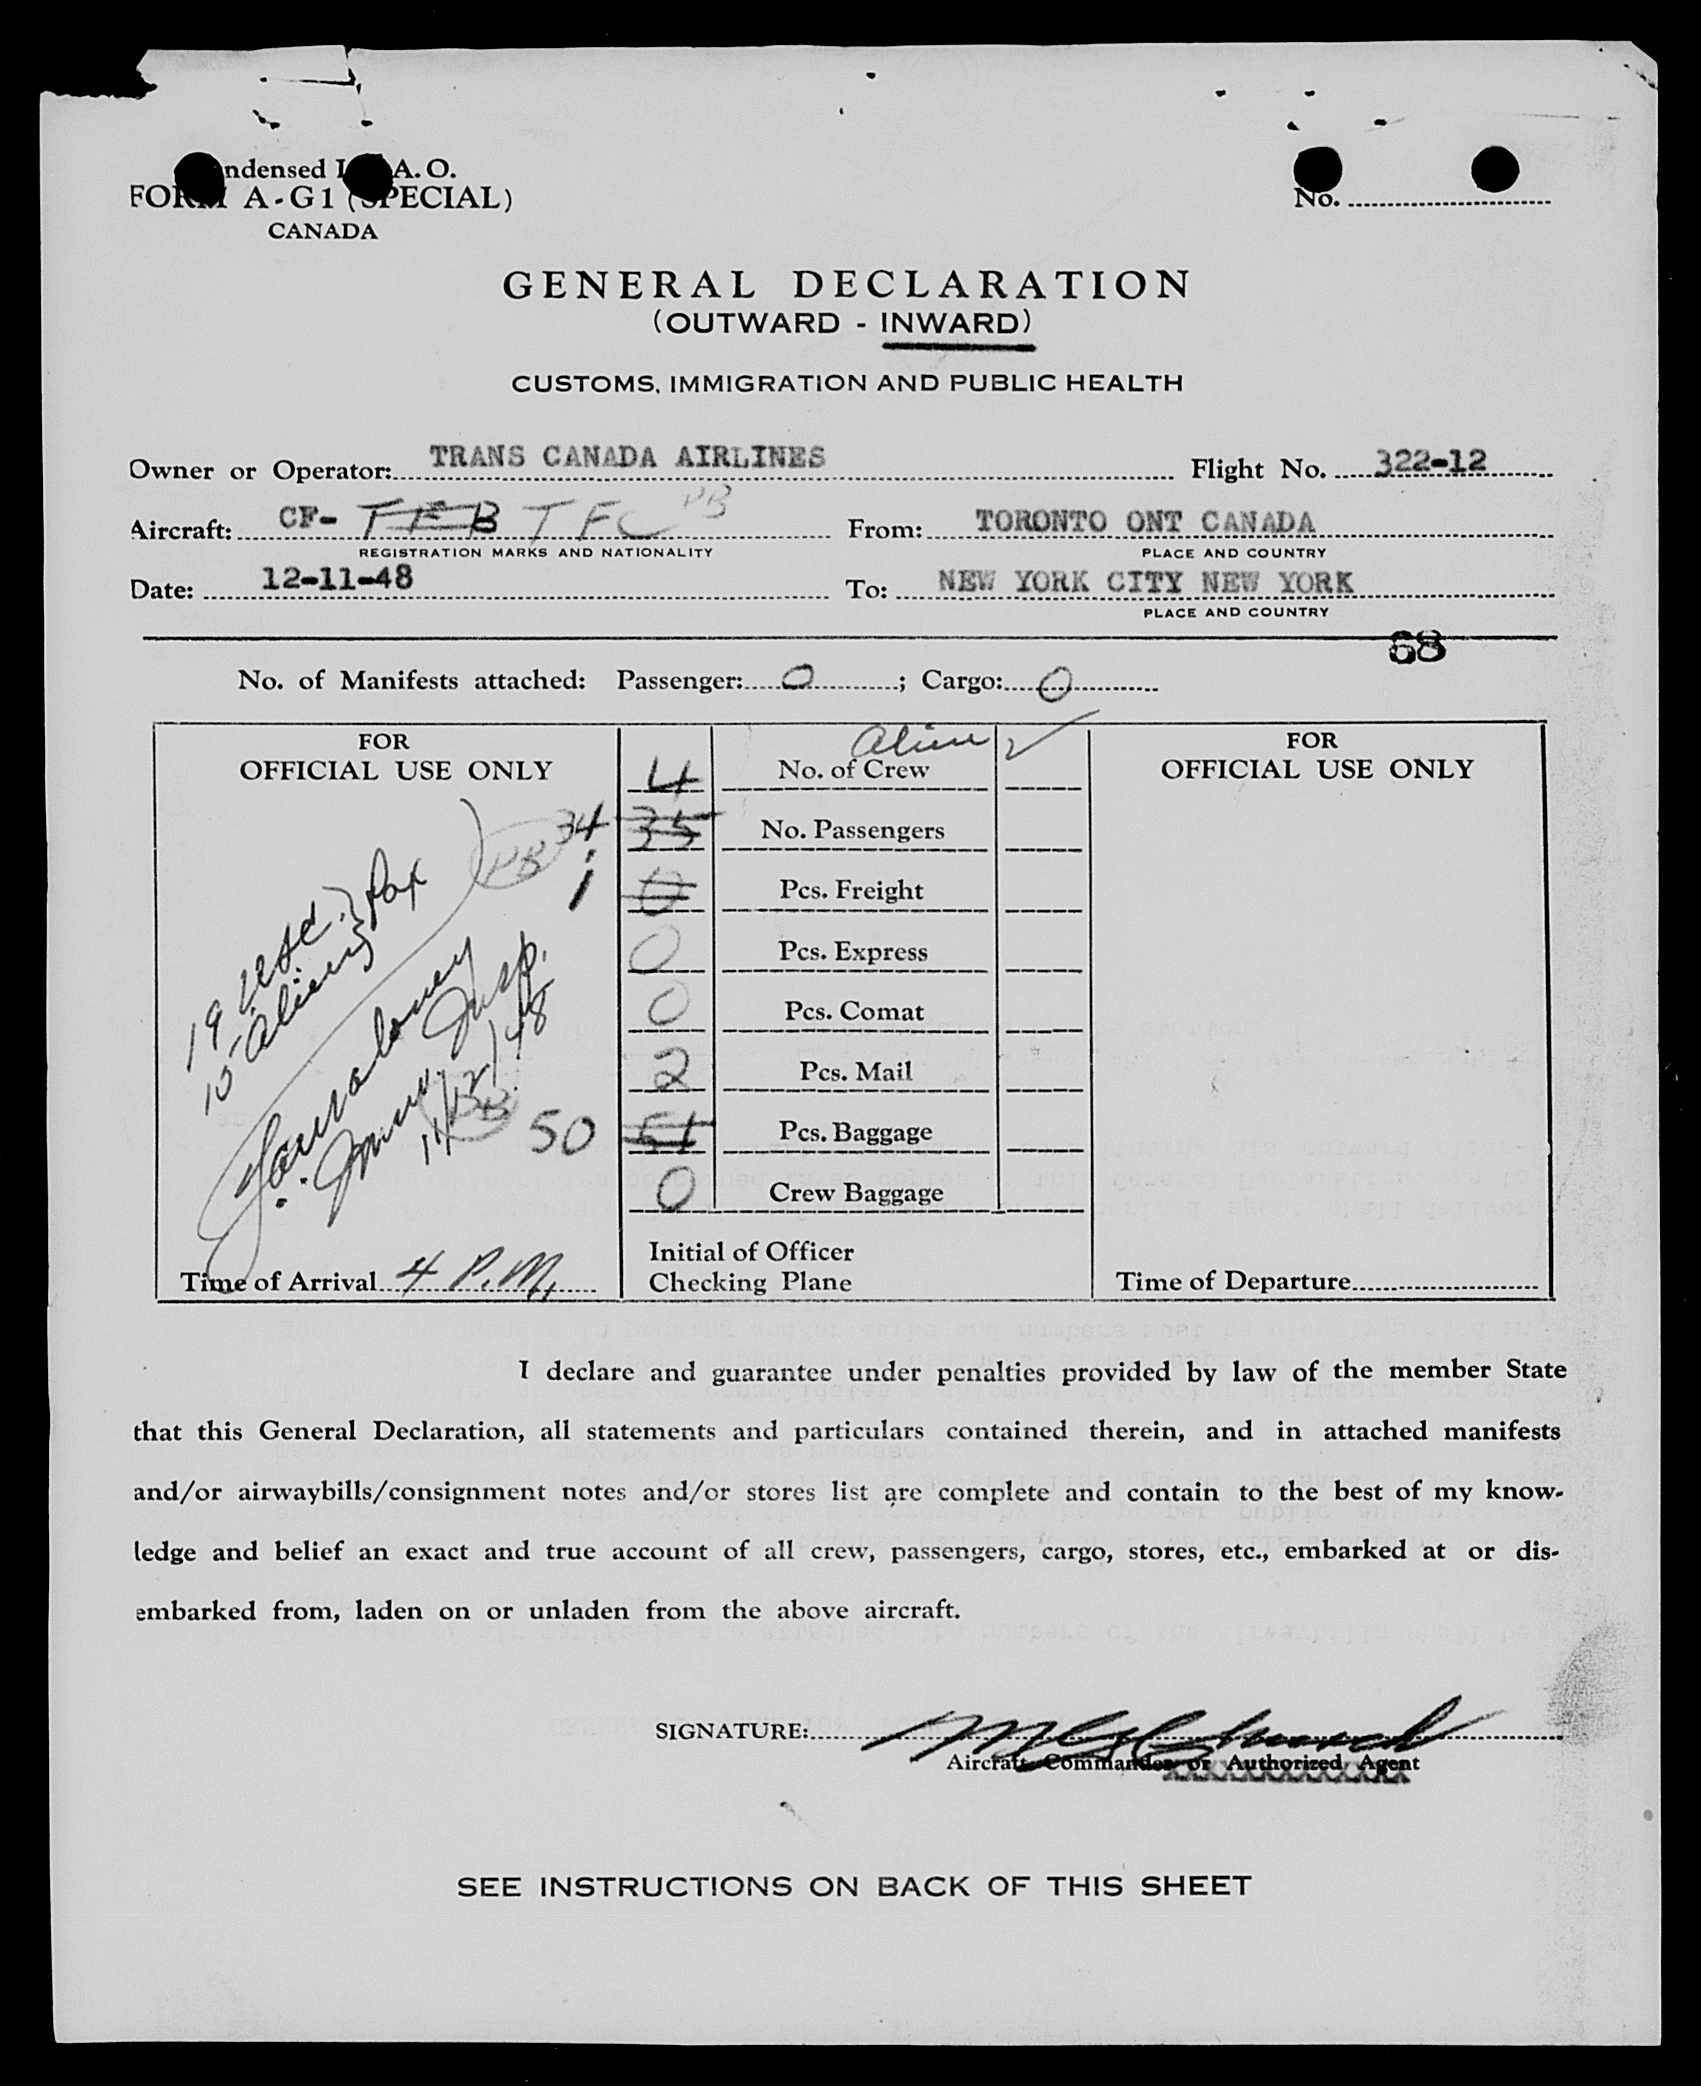 ndensed I A. O.
FORM A-G1 (SPECIAL)
CANADA
No.
GENERAL DECLARATION
(OUTWARD - INWARD)
CUSTOMS, IMMIGRATION AND PUBLIC HEALTH
Owner or Operator: TRANS CANADA AIRLINES Flight No. 322-12
Aircraft: CF- TFB TFC PB From: TORONTO ONT CANADA
REGISTRATION MARKS AND NATIONALITY PLACE AND COUNTRY
Date: 12-11-48 To: NEW YORK CITY NEW YORK
PLACE AND COUNTRY
68
No. of Manifests attached: Passenger: 0; Cargo: 0
FOR
OFFICIAL USE ONLY
19 USC. } Pax
15 Aliens
Insp.
Imm.
11/12/48
PB 34
1
PB 50
Time of Arrival 4 P.M.
Alien ✓
4 No. of Crew
35 No. Passengers
0 Pcs. Freight
0 Pcs. Express
0 Pcs. Comat
2 Pcs. Mail
51 Pcs. Baggage
0 Crew Baggage
Initial of Officer
Checking Plane
FOR
OFFICIAL USE ONLY
Time of Departure
I declare and guarantee under penalties provided by law of the member State
that this General Declaration, all statements and particulars contained therein, and in attached manifests
and/or airwaybills/consignment notes and/or stores list are complete and contain to the best of my know-
ledge and belief an exact and true account of all crew, passengers, cargo, stores, etc., embarked at or dis-
embarked from, laden on or unladen from the above aircraft.
SIGNATURE:
Aircraft Commander or Authorized Agent
SEE INSTRUCTIONS ON BACK OF THIS SHEET